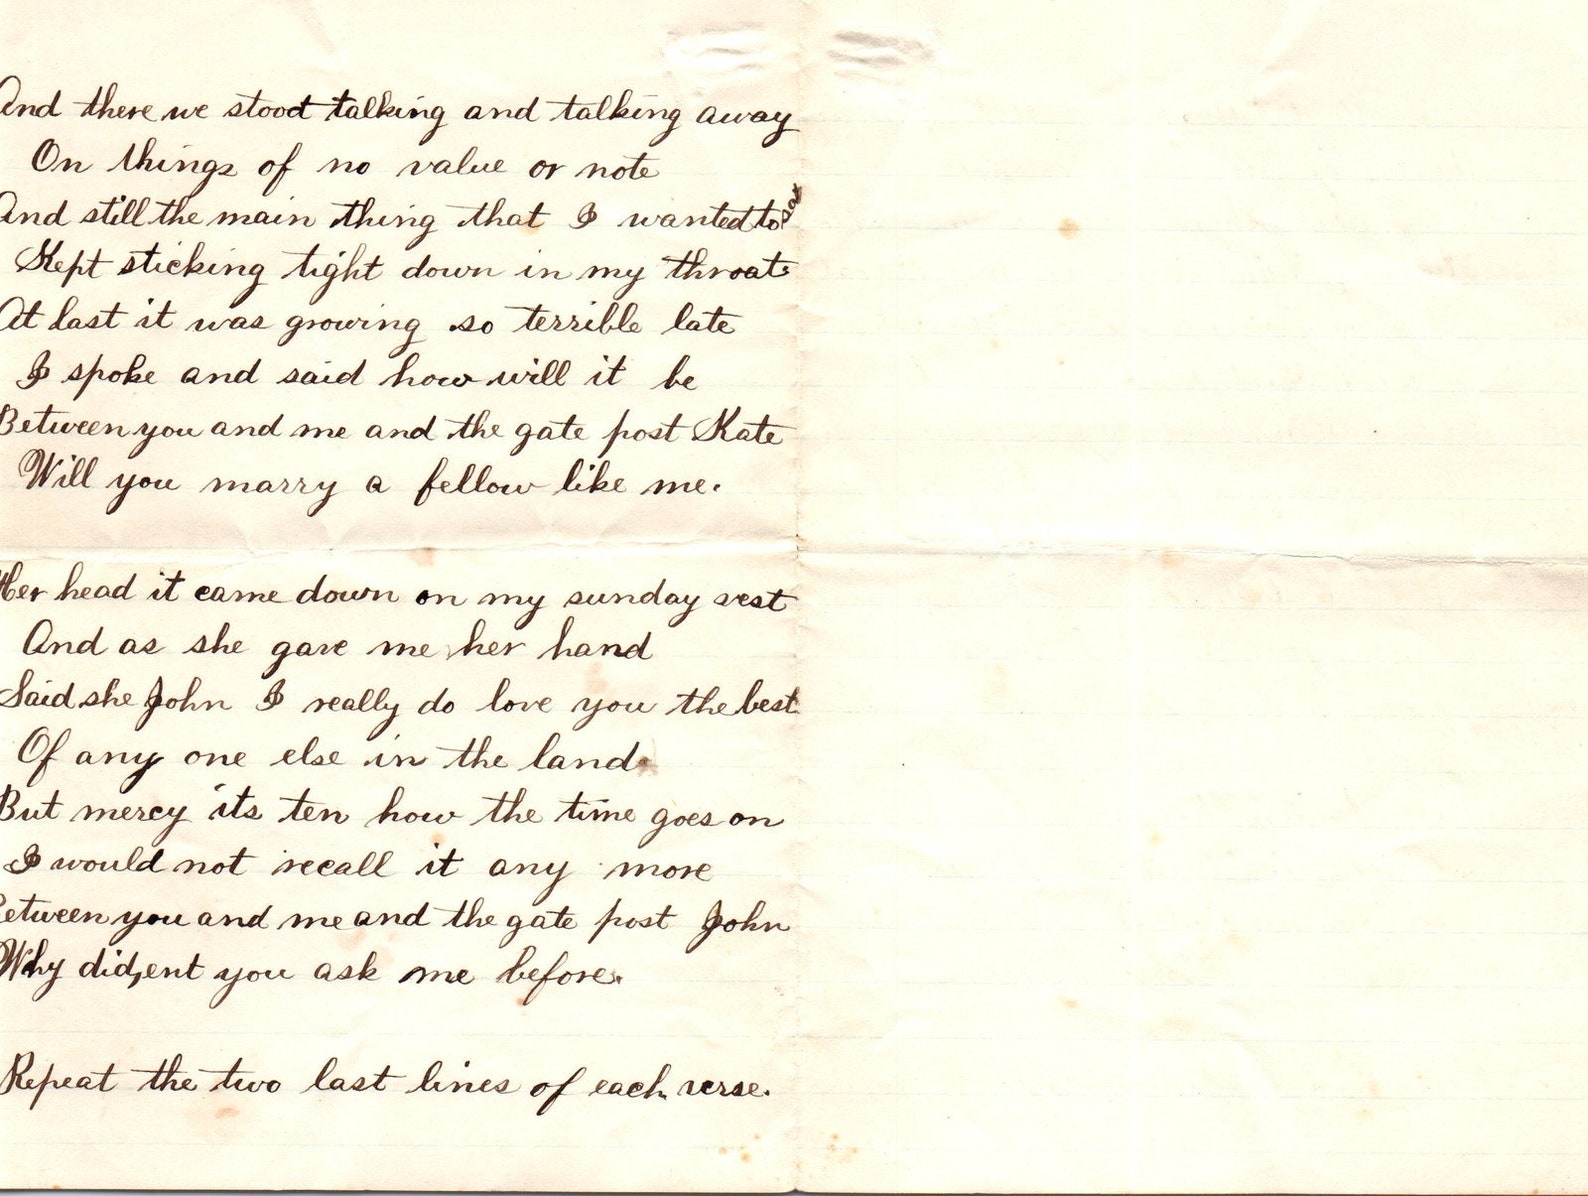 And there we stood talking and talking away
On things of no value or note
And still the main thing that I wanted to say
Kept sticking tight down in my throat
At last it was growing so terrible late
I spoke and said how will it be
Between you and me and the gate post Kate
Will you marry a fellow like me.
Her head it came down on my sunday vest
And as she gave me her hand
Said she John I really do love you the best
Of any one else in the land.
But mercy its ten how the time goes on
I would not recall it any more
Between you and me and the gate post John
Why did,ent you ask me before.
Repeat the two last lines of each verse.